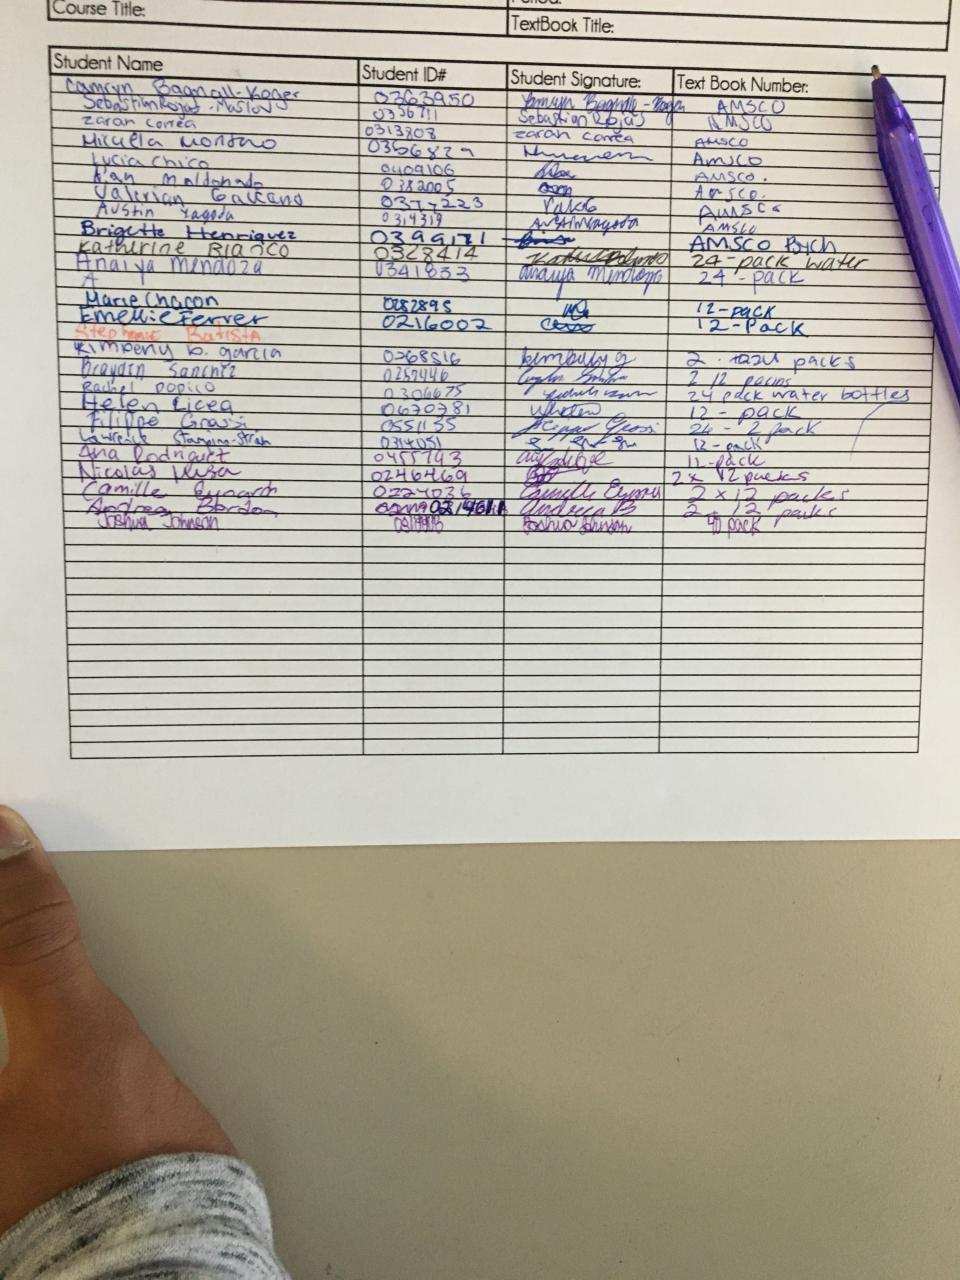 Course Title:
TextBook Title:
Student Name Student ID# Student Signature: Text Book Number:
Camryn Bagnall-Koger 0363950 AMSCO
Sebastian Rojas-Maslov 0336711 Sebastian Rojas AMSCO
zarah correa 0313808 zarah correa AMSCO
Micaela Montano 0366829 AMSCO
Lucia Chico 0409106 AMSCO.
Maldonado 0382005 AMSCO.
Valerian Galeano 0377223 AMSCO
Austin Yagoda 0314319 Austin Yagoda AMSCO
Brigette Henriquez 0399171 AMSCO Psych
Katherine Bianco 0328414 24-pack water
Anaiya Mendoza 0341833 anaiya Mendoza 24-pack
A
Marie Chacon 0282895 12-pack
Emellie Ferrer 0216002 12-Pack
Stephanie Batista
Kimberly b. garcia 0268516 kimberly g 2 packs
Brayden Sanchez 0257446 2 12 packs
Rachel 0306675 24 pack water bottles
Helen Licea 0670781 12-pack
Filippo Grassi 0551135 Filippo Grassi 24 - 2 pack
Lawrence 0314051 12-pack
Ana Rodriguez 0455743 pack
Nicolas 0246469 2x 12 packs
Camille 0224036 Camille 2 x 12 packs
Andrea 0214611 Andrea B 2 - 12 packs
Joshua Johnson Joshua Johnson pack